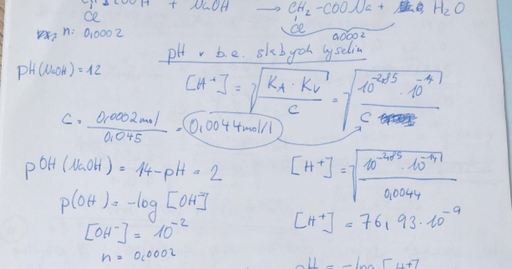 COOH + NaOH → CH₂-COONa + H₂O
Cl Cl
n: 0,0002 0,0002
pH v b.e. slabých kyselin
pH(NaOH)=12
[H⁺] = √(K_A · K_V / c) = √(10^-2,85 · 10^-14 / c)
c = 0,0002mol / 0,045 = 0,0044mol/l
pOH(NaOH) = 14-pH = 2
[H⁺] = √(10^-2,85 · 10^-14 / 0,0044)
p(OH) = -log [OH⁻]
[H⁺] = 76,93·10⁻⁹
[OH⁻] = 10⁻²
n = 0,0002
pH = -log [H⁺]